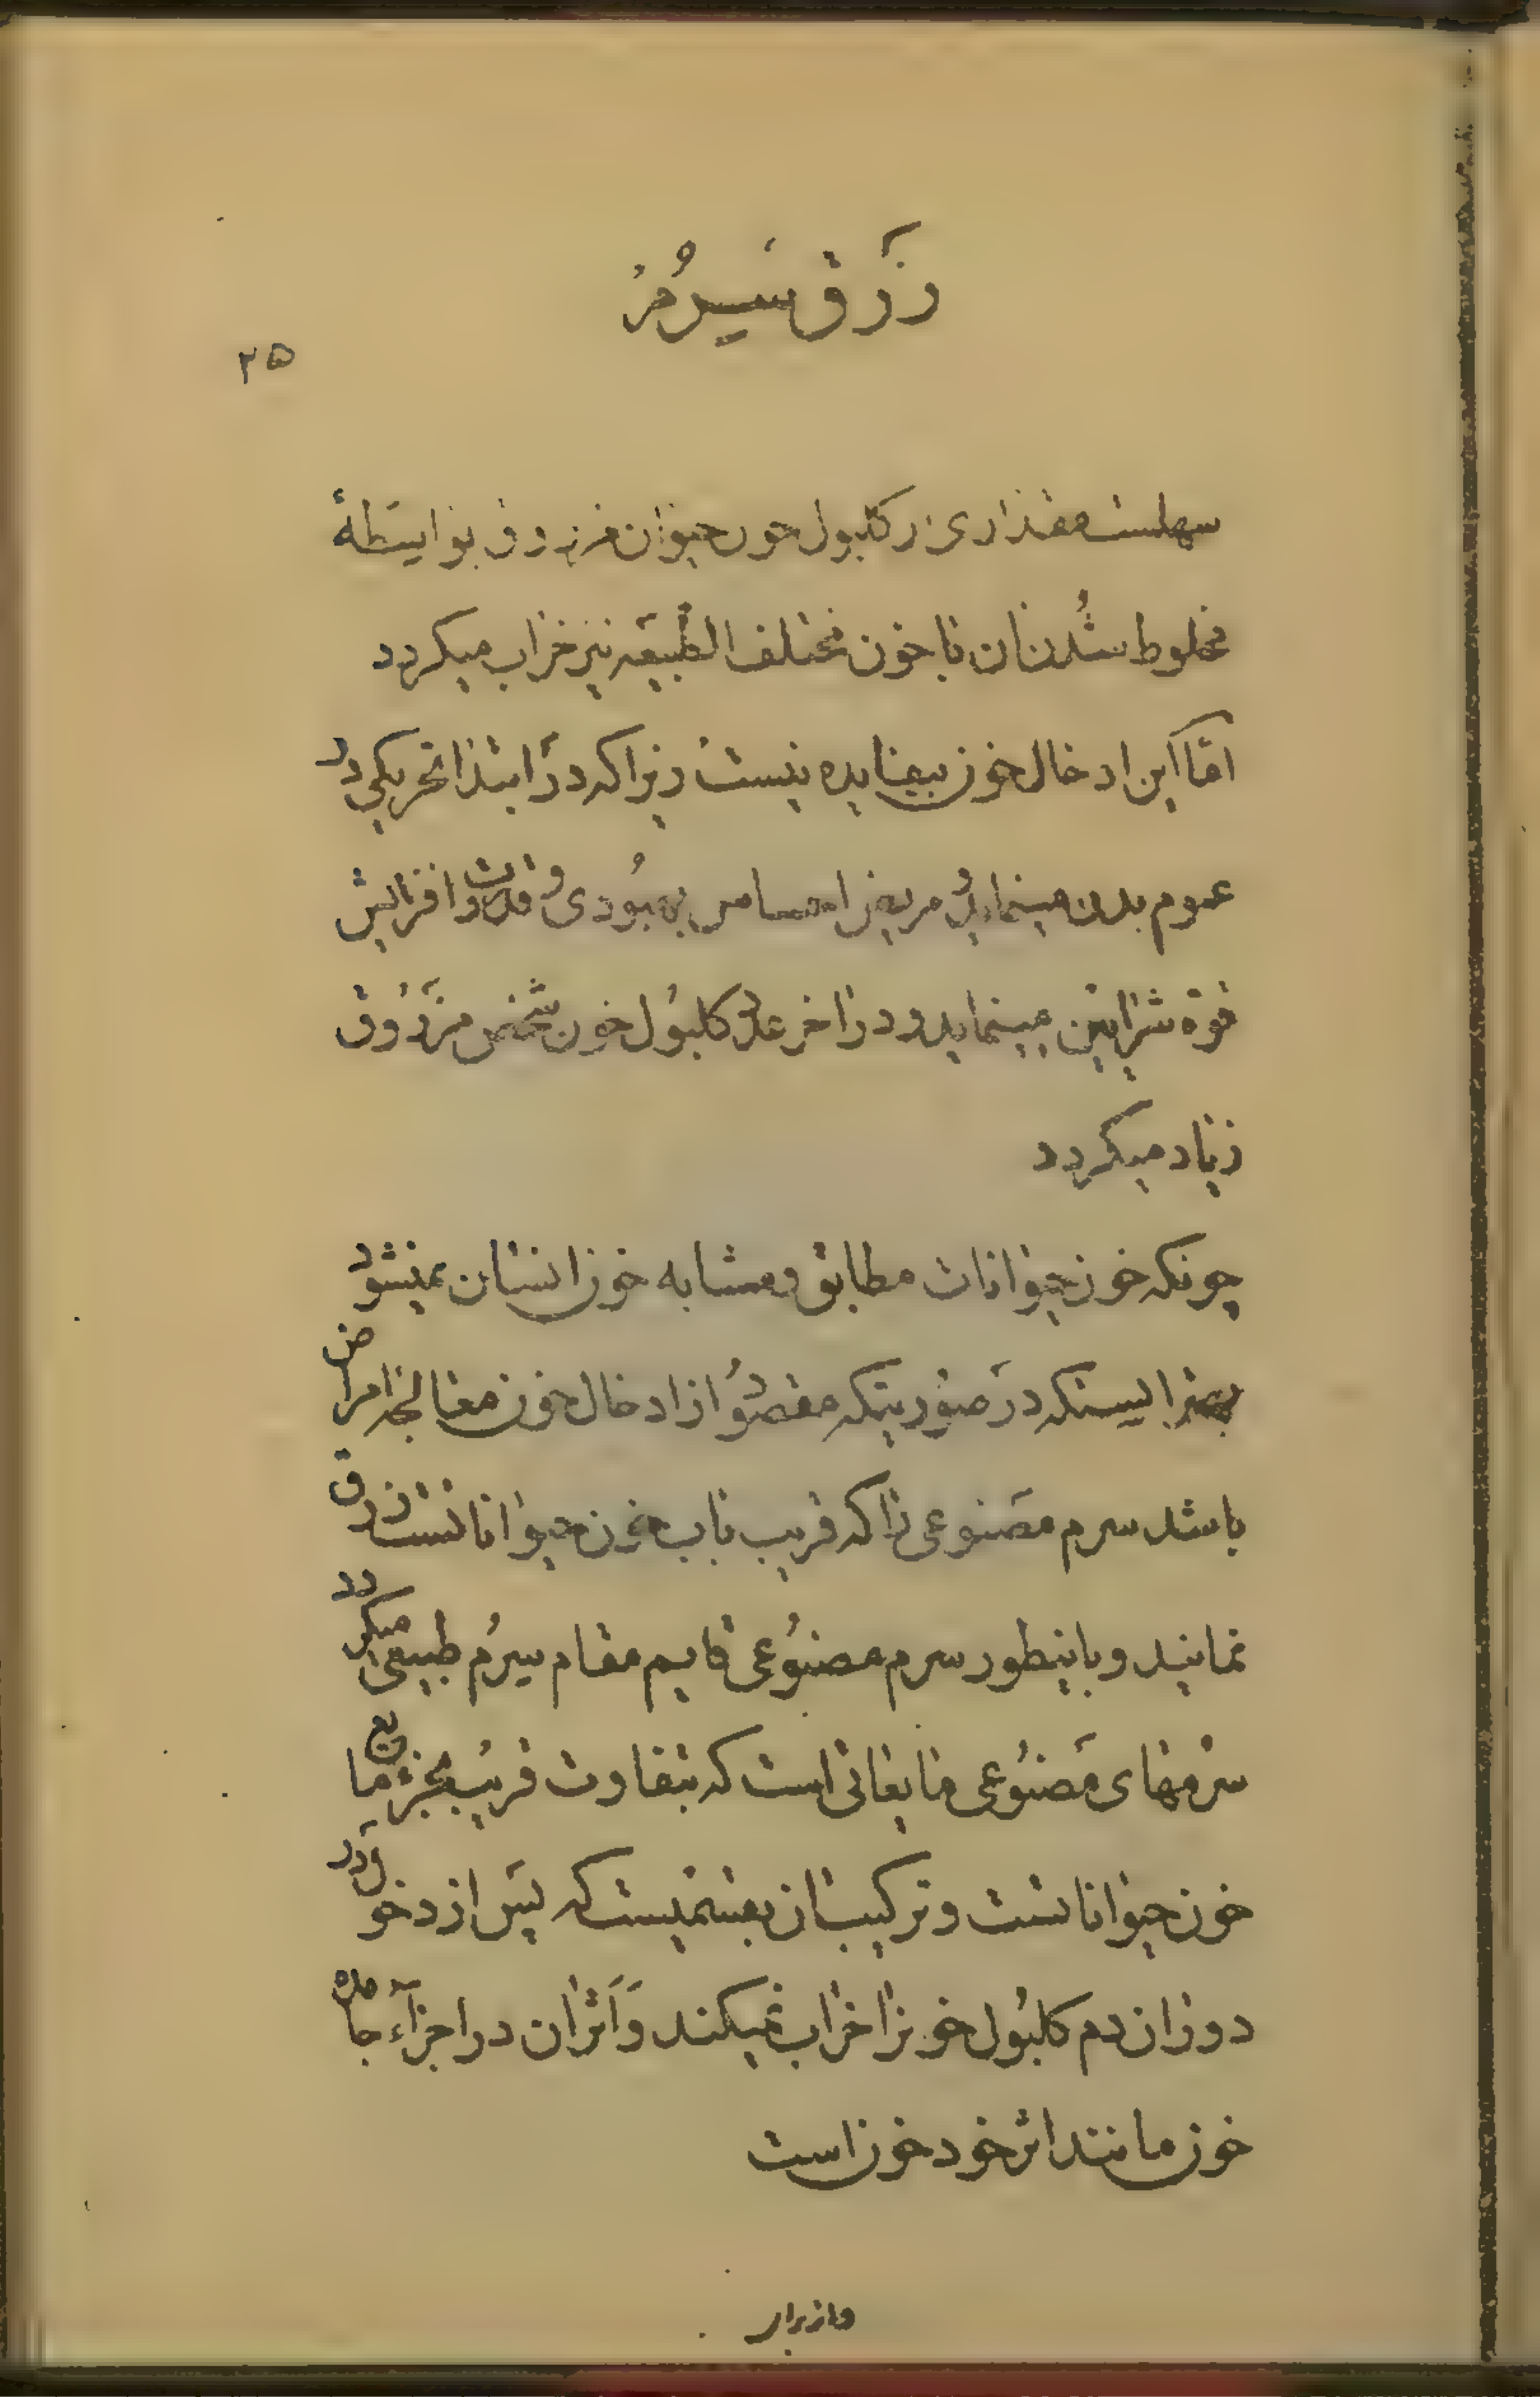 زَرق سَیرُم
۲۵
سهلست مقداری از کلبول خون حیوان مزروق بواسطهٔ
مخلوط شُدن آن با خون مختلف الطّبیعه نیز خراب میکردد
امّا این ادخال خون بیفایده نیست زیرا که دَر ابتدا تحریکی در
عموم بدن مینماید و مریض احساس بهبُودی و قدرت و افزایش
قوة شرایین مینماید و در آخر عدد کلبُول خون شخص مَزرُوق
زیاد میکردد
چونکه خون حیوانات مطابق و مشابه خون انسان نمیشود
بهتر اینستکه دَر صورتیکه مقصُود از ادخال خون معالجه امراض
باشد سرم مصَنوعی را که قریب بآب خون حیوانات است زرق
نمایند و باینطور سرم مصنُوعی قایم مقام سیرُم طبیعی میکردد
سرمهای مَصنُوعی مایعاتی است که بتفاوت قریب بجزء مایع
خون حیواناتست و ترکیب آن بقسمیست که پَس از دخول در
دوران دم کلبُول خونرا خراب نمیکند وَ اَثر آن در اجزآء جامده
خون مانند اثر خود خون است